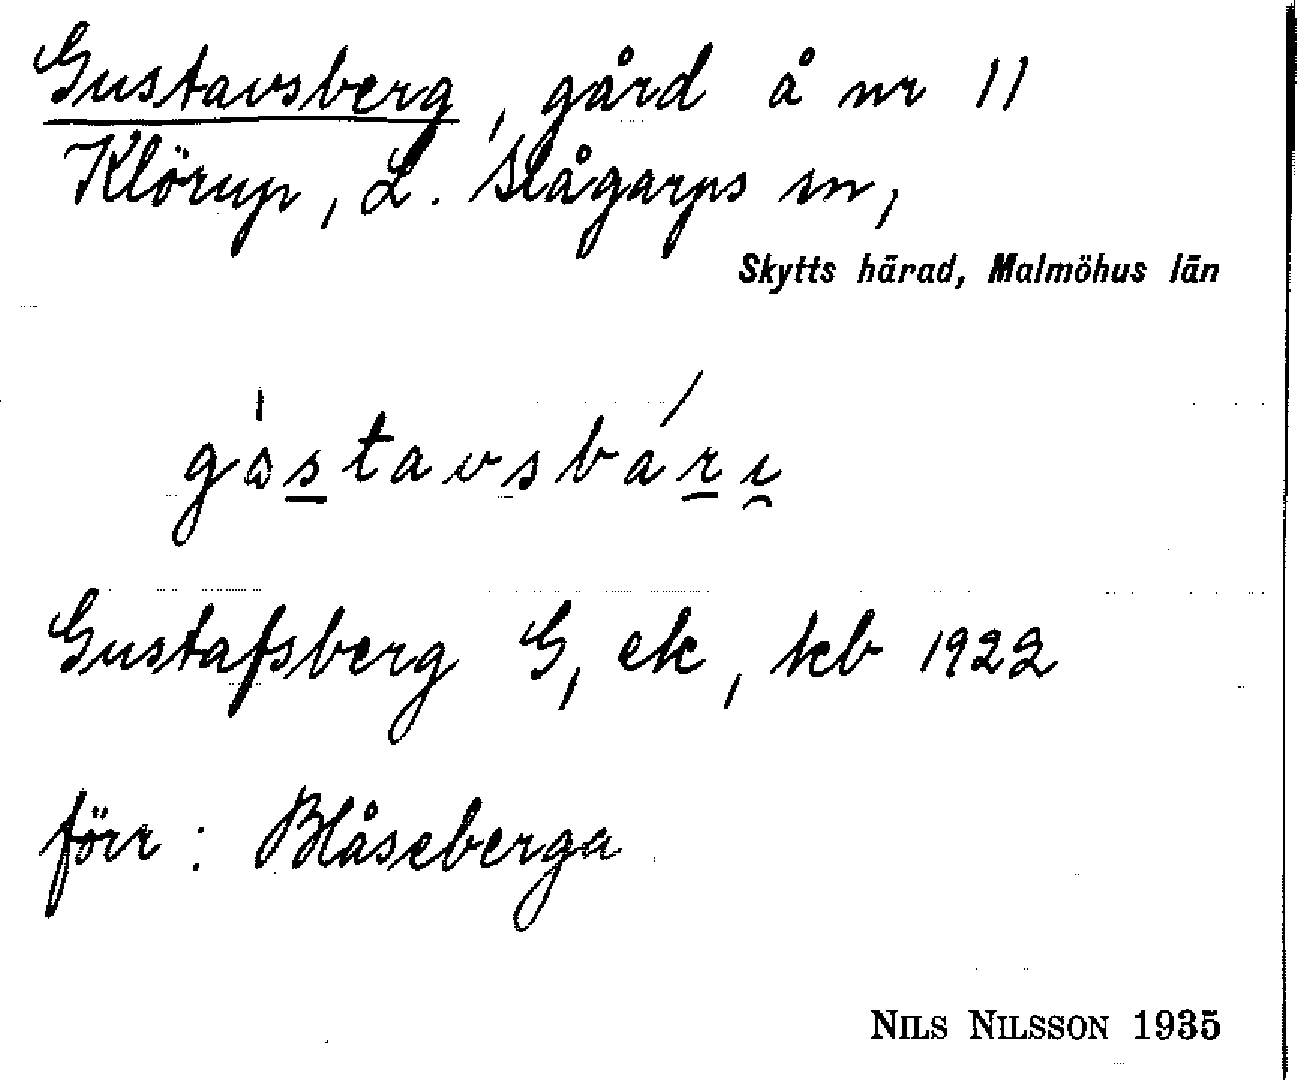 Gustavsberg, gård å nr 11
Klörup, L. Slågarps sn,
Skytts härad, Malmöhus län
Gustafsberg G, ek, kb 1922
förr: Blåseberga
NILS NILSSON 1935